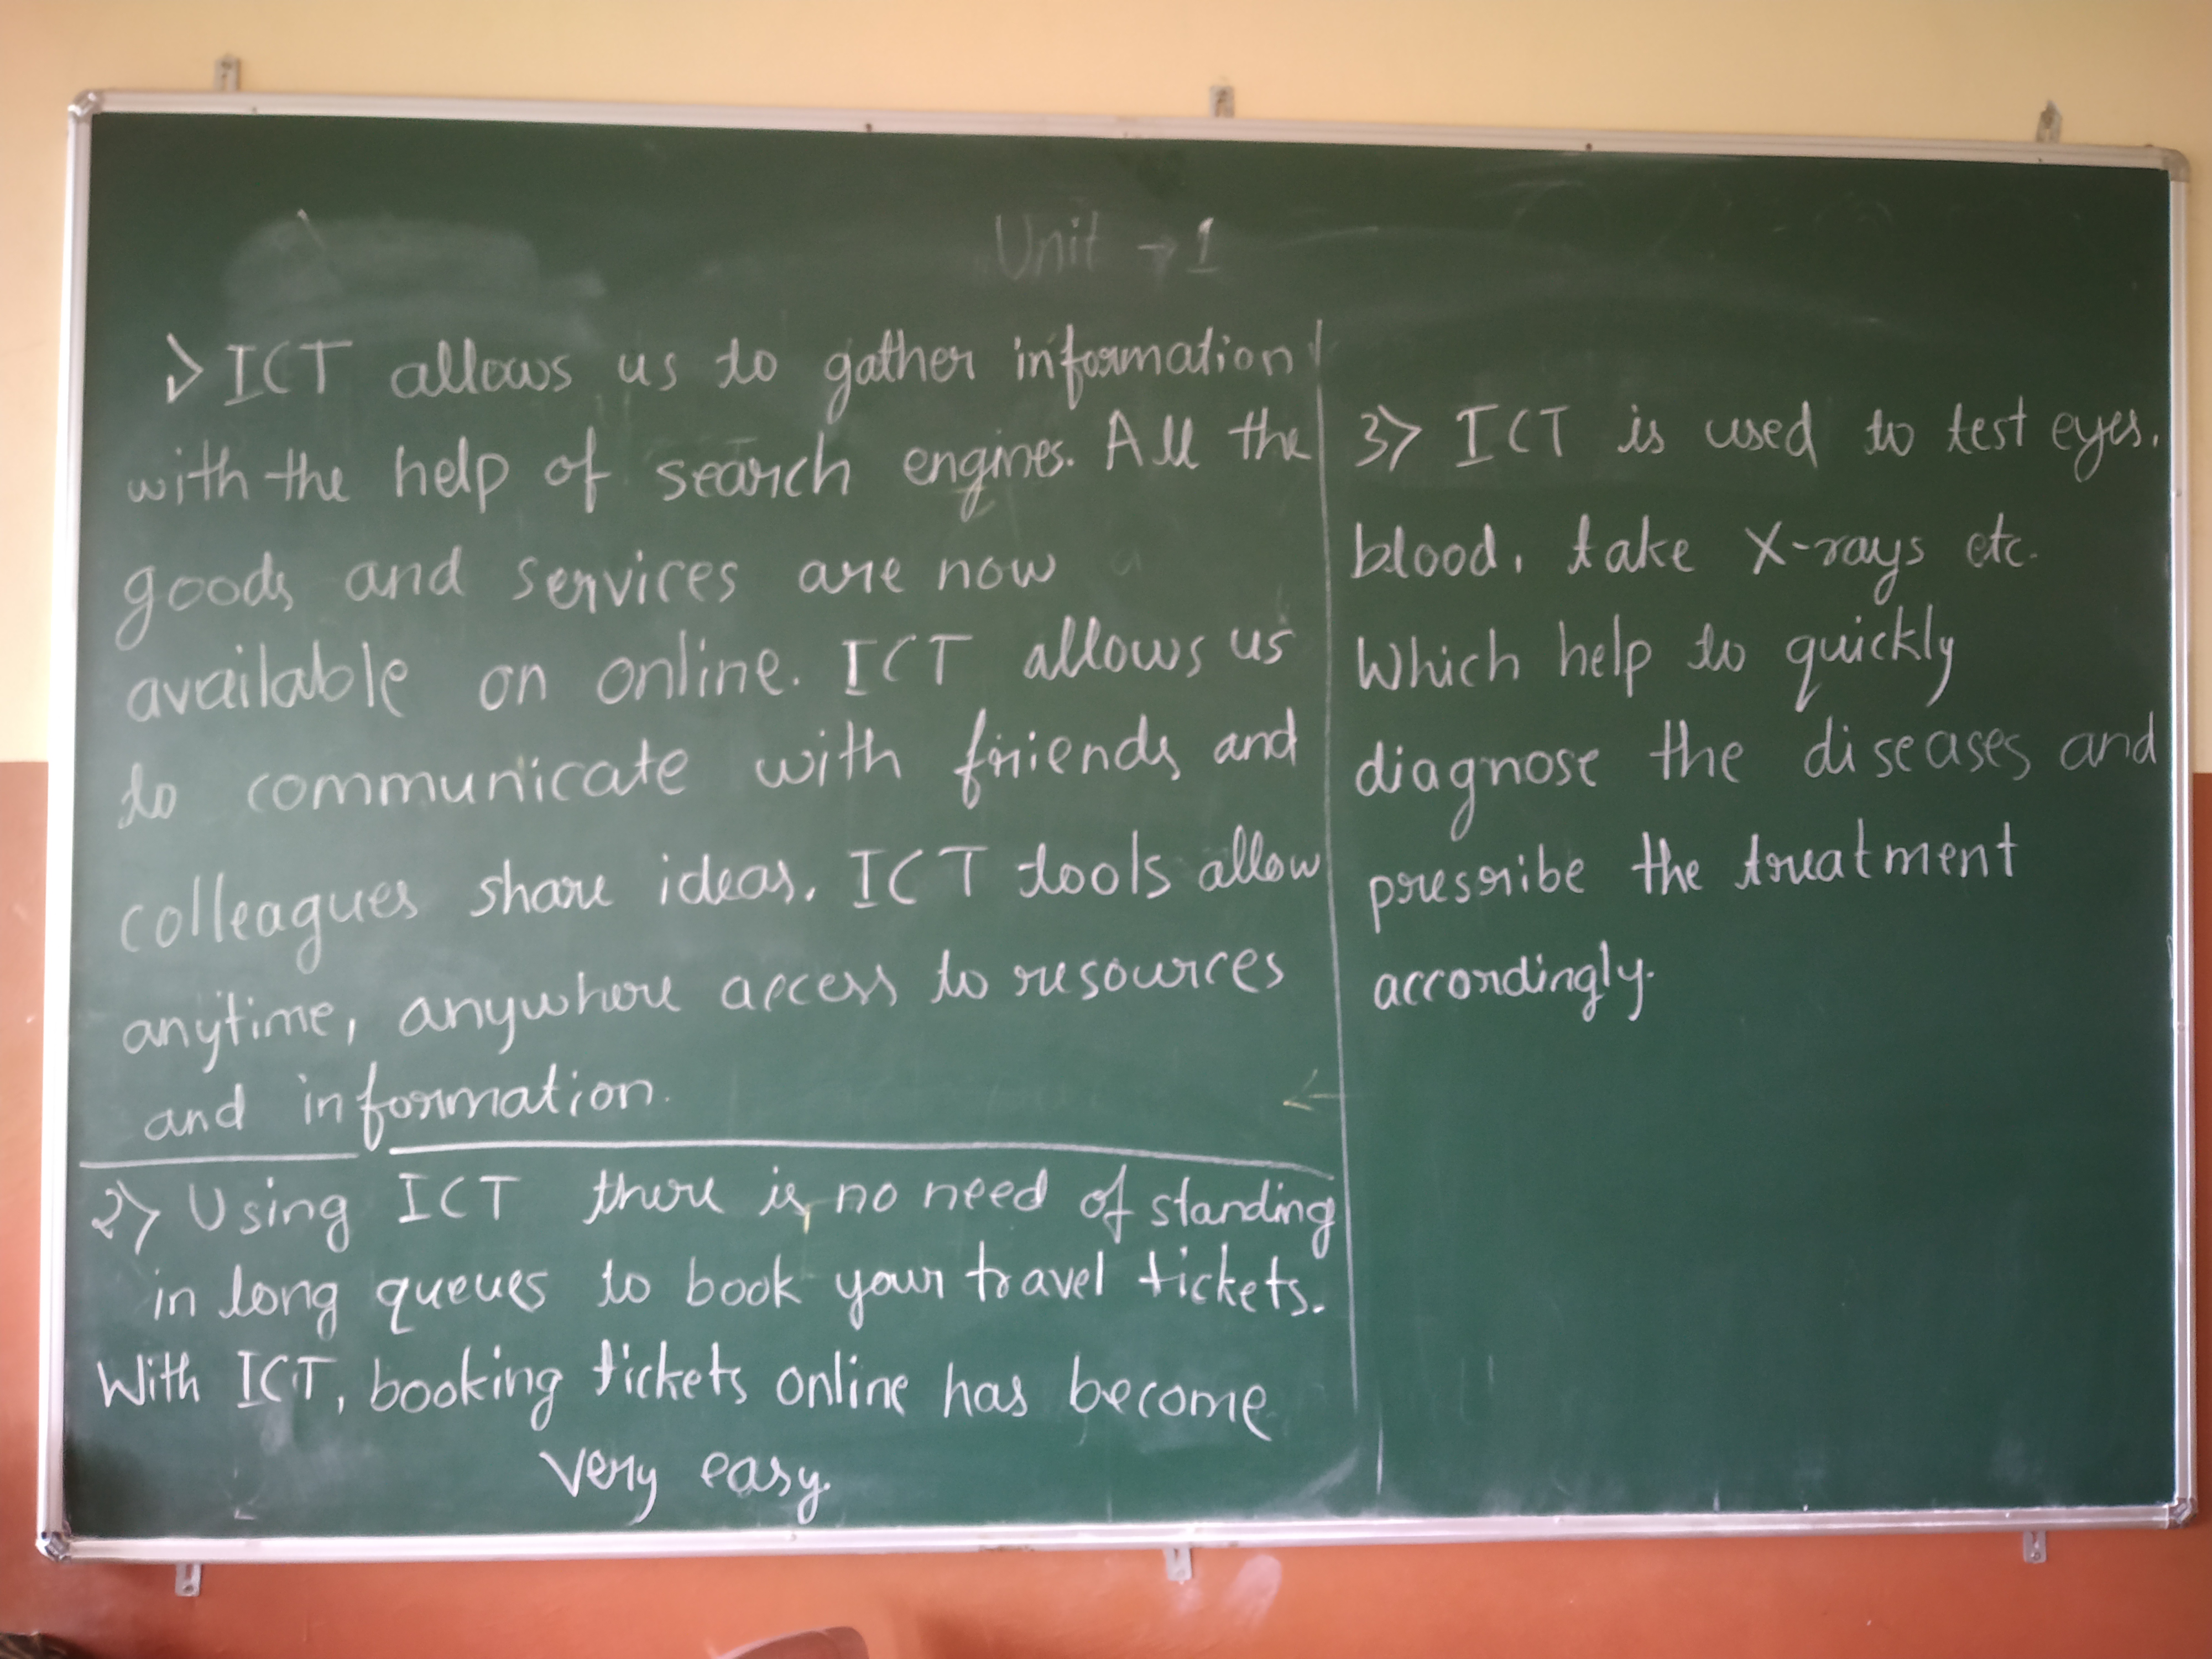 Unit → 1
1> ICT allows us to gather information
with the help of search engines. All the
goods and services are now
available on online. ICT allows us
to communicate with friends and
colleagues share ideas. ICT tools allow
anytime, anywhere access to resources
and information.
2> Using ICT there is no need of standing
in long queues to book your travel tickets.
With ICT, booking tickets online has become
very easy.
3> ICT is used to test eyes,
blood, take X-rays etc.
Which help to quickly
diagnose the diseases and
pressribe the treatment
accordingly.